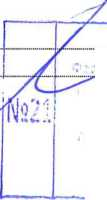 №21